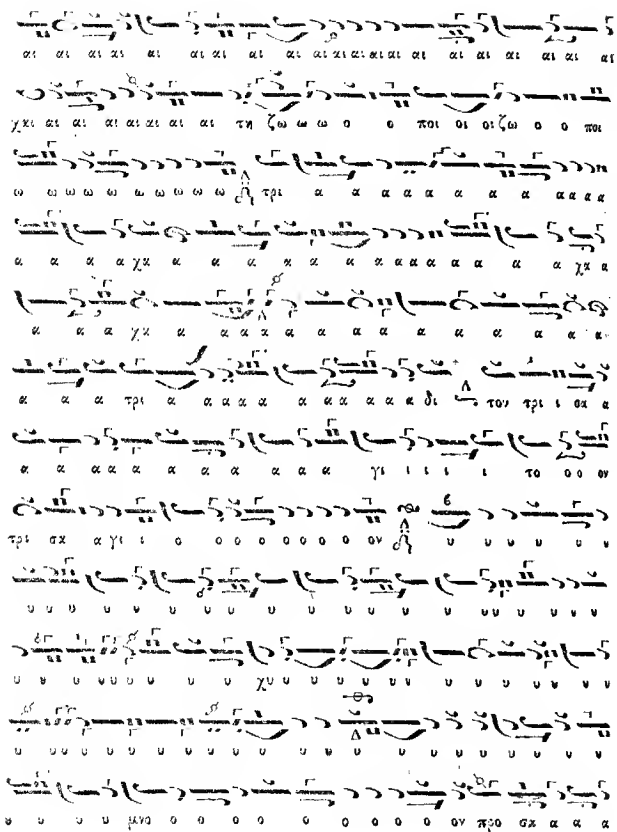 αι αι αι αι αι αι αι αι αι αι αι αι αι αι αι αι αι αι αι
χαι αι αι αι αι αι αι τη ζω ω ω ο ο ποι οι οι ζω ο ο ποι
ω ω ω ω ω ω ω ω ω ω τρι α α α α α α α α α α α
α α α α χα α α α α α α α α α α α α α χα α
α α α χα α α α α α α α α α α α α α α
α α α τρι α α α α α α α α α α α α δι τον τρι ι σα α
α α α α α α α α α α α γι ι ι ι ι το ο ο ον
τρι σα α γι ι ο ο ο ο ο ο ο ο ον υ υ υ υ υ υ
υ υ υ υ υ υ υ υ υ υ υ υ υ υ υ υ υ
υ υ υ υ υ υ υ υ χυ υ υ υ υ υ υ υ υ υ υ υ
υ υ υ υ υ υ υ υ υ υ υ υ υ υ υ υ υ υ υ
υ υ υ μνο ο ο ο ο ο ο ο ο ον προ σα α α α